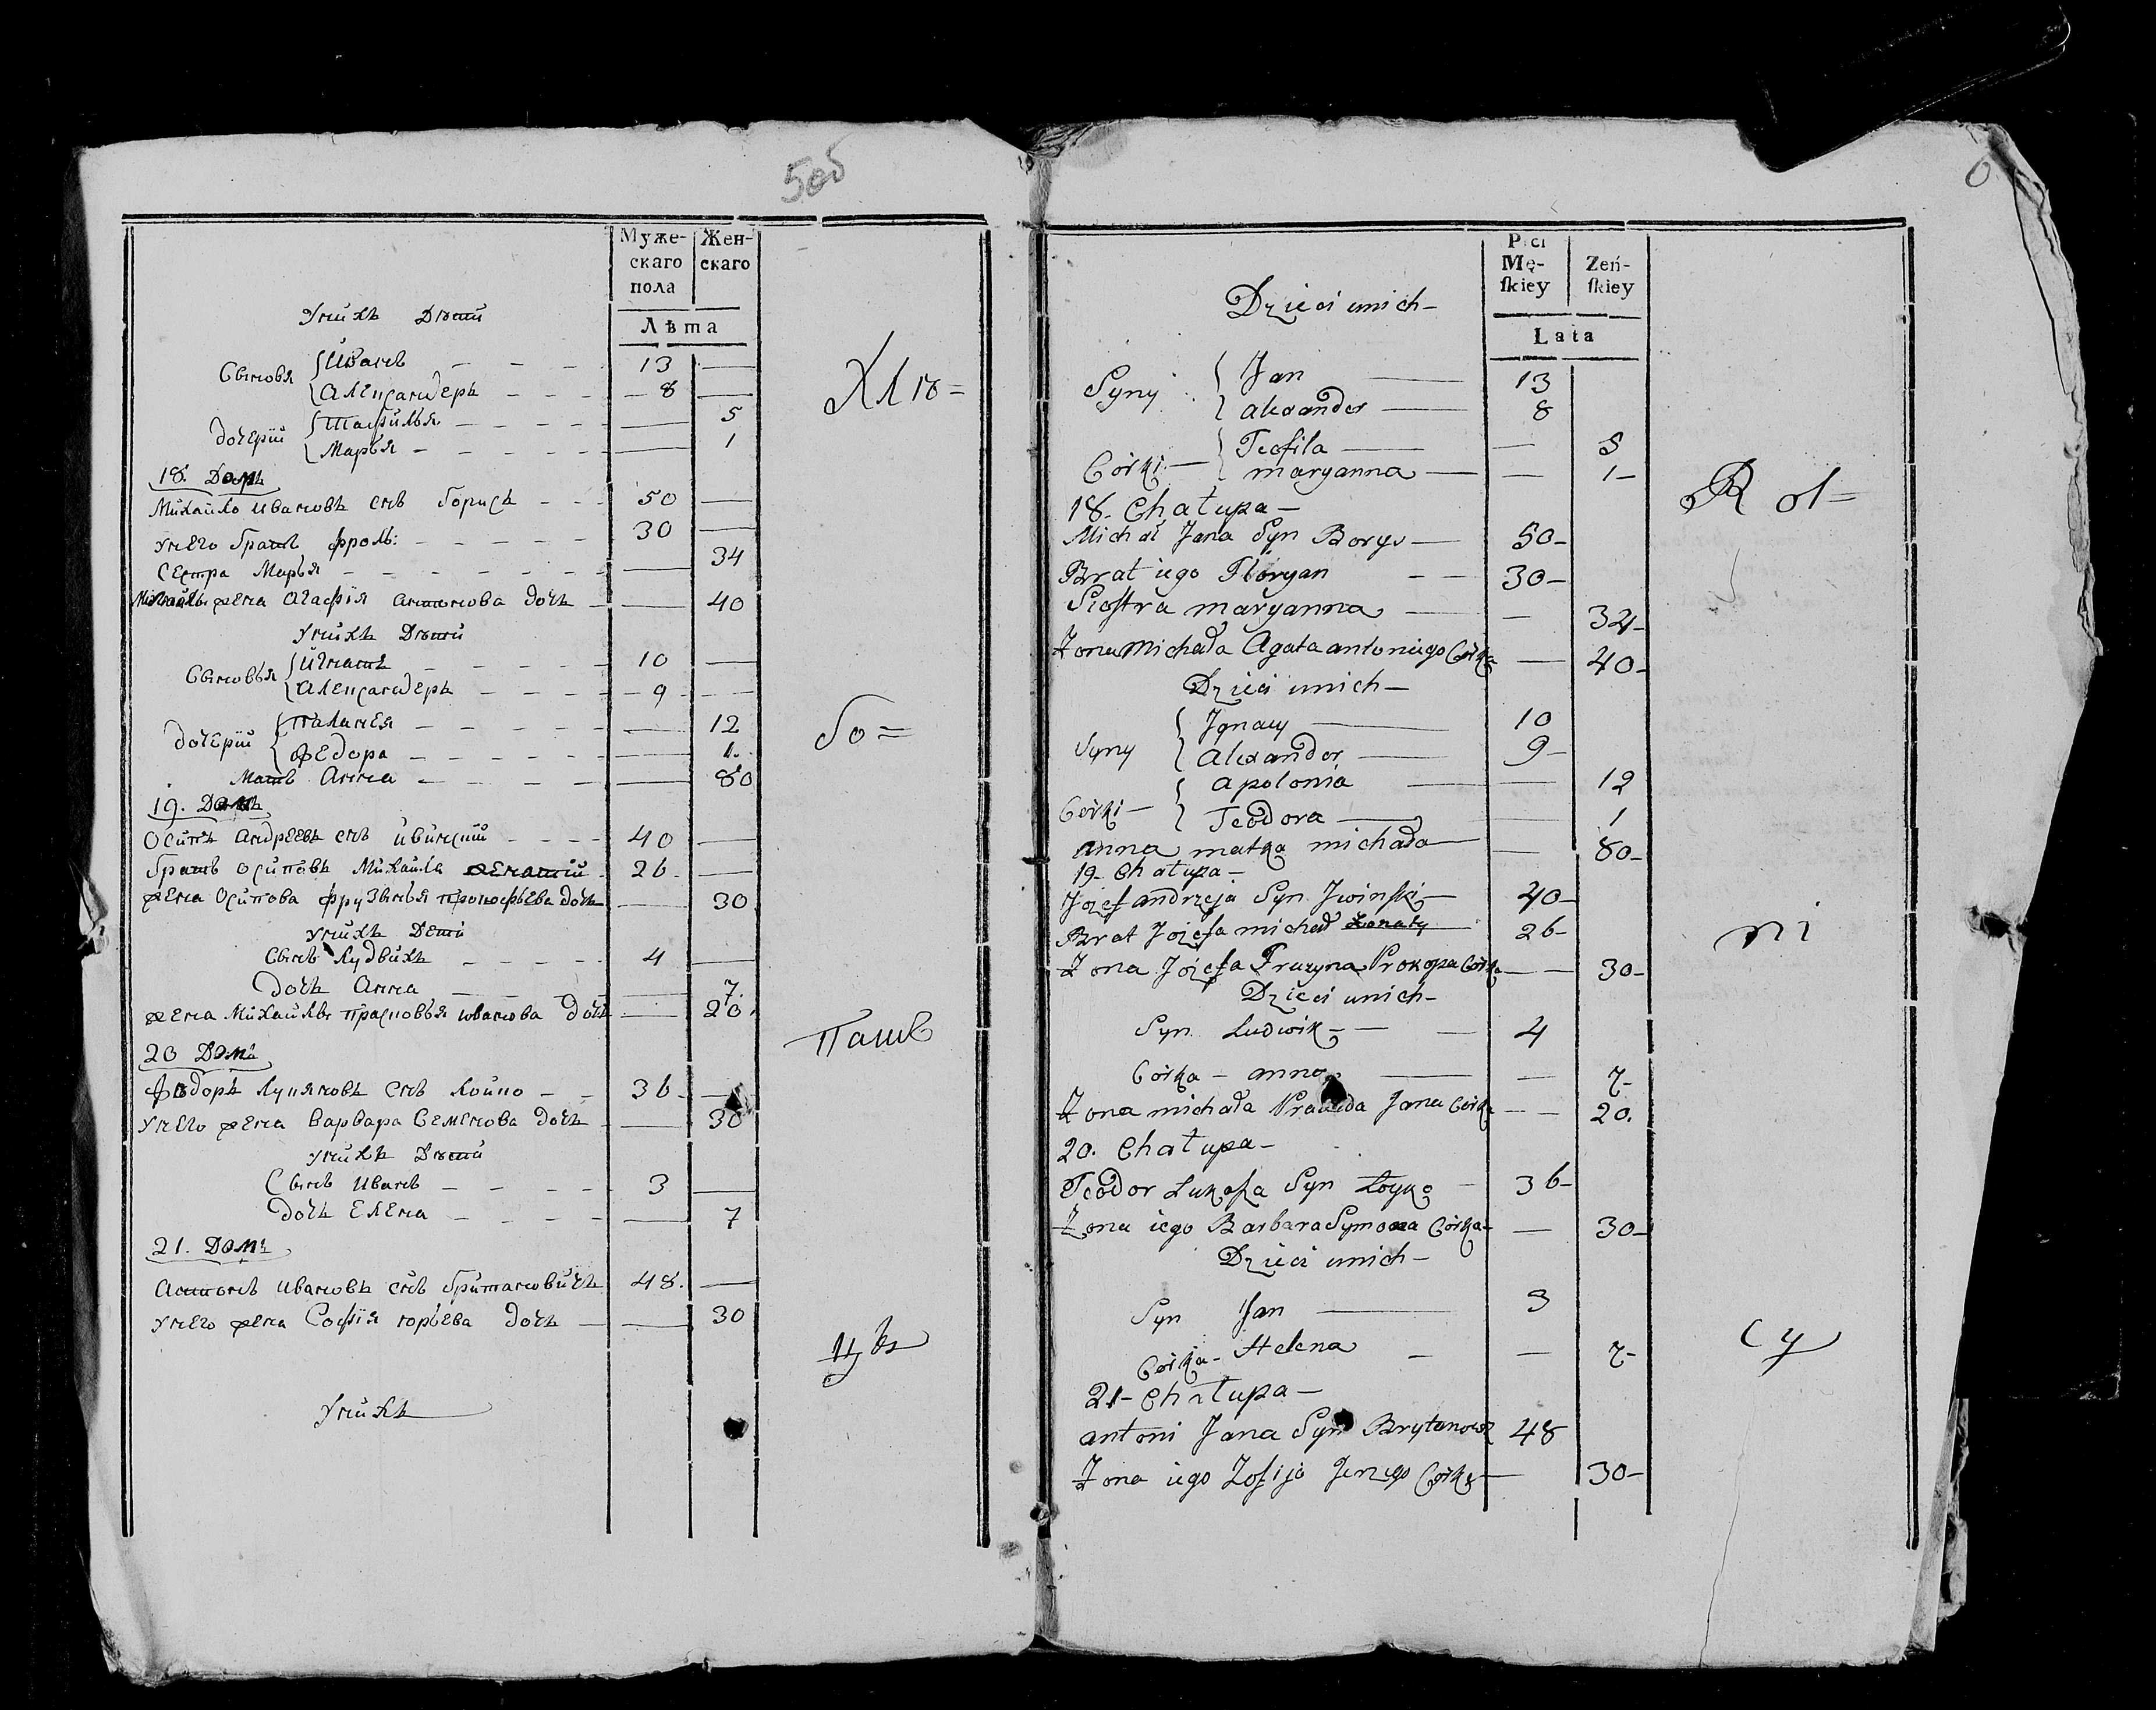 50об
Муже- Жен-
скаго скаго
пола
Лѣта
У нихъ Дѣти
Сыновья Иванъ 13 —
Александеръ 8 —
дочерїи Тиофилья — 5
Марья — 1
Хлѣ=
18. Домъ
Михайло Ивановъ снъ Борисъ 50 —
У него братъ Фролъ: 30 —
Сестра Марья — 34
Михайлы жена Агафїя Антонова дочь — 40
У нихъ Дѣти
Сыновья Игнатъ 10 —
Александеръ 9 —
дочерїи Паланея — 12
Федора — 1
Мать Анна — 80
бо=
19. Домъ
Осипъ Андреевъ снъ Ивинскїй 40 —
братъ Осиповъ Михайла женатїй 26 —
жена Осипова Фрузынья Прокофьева дочь — 30
У нихъ Дети
Сынъ Лудвихъ 4 —
Дочь Анна — 7
жена Михайлы Прасковья Иванова дочь — 20
Паш
20 Домъ
Фѣдоръ Лукяновъ снъ Лойко 36 —
У него жена Варвара Семенова дочь — 30
У нихъ Дѣти
Сынъ Иванъ 3 —
Дочь Елена — 7
21. Домъ
Антонъ Ивановъ снъ Британовичъ 48. —
У него жена Софїя Юрьева дочь — 30
цы
У нихъ
0
Płci
Mę- Zeń-
ſkiey ſkiey
Lata
Dzieci unich
Syny Jan 13
Alexander 8
Córki Teofila — 5
Maryanna — 1
Rol=
18. Chałupa
Michał Jana Syn Borys 50
Brat iego Floryan 30
Siostra Maryanna — 34
Żona Michała Agata Antoniego Córka — 40
Dzieci unich
Syny Jgnacy 10
Alexander 9
Córki Apolonia — 12
Teodora — 1
Anna matka Michała — 80
19. Chałupa
Józef Andrzeja Syn Jwinski 40
Brat Józefa Michał Żonaty 26
Żona Józefa Fruzyna Prokopa Córka — 30
ni
Dzieci unich
Syn Ludwik 4
Córka Anna — 7
Żona Michała Jana Córka — 20.
20. Chałupa
Teodor Lukasza Syn Łoyko 36
Żona iego Barbara Symona Córka — 30
Dzieci unich
Syn Jan 3
Córka Helena — 7
cy
21 Chałupa
Antoni Jana Syn Brytanowicz 48
Żona iego Zofija Jerzego Córka — 30